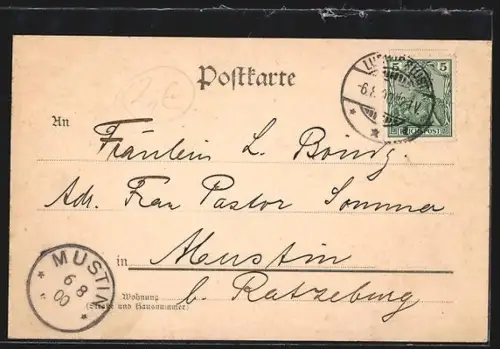 Postkarte
5 5
REICHSPOST
An
Fräulein L.
Adr. Frau Pastor Sommer
in Mustin
Wohnung
(Straße und Hausnummer)
b. Ratzeburg
MUSTIN
6 8
00